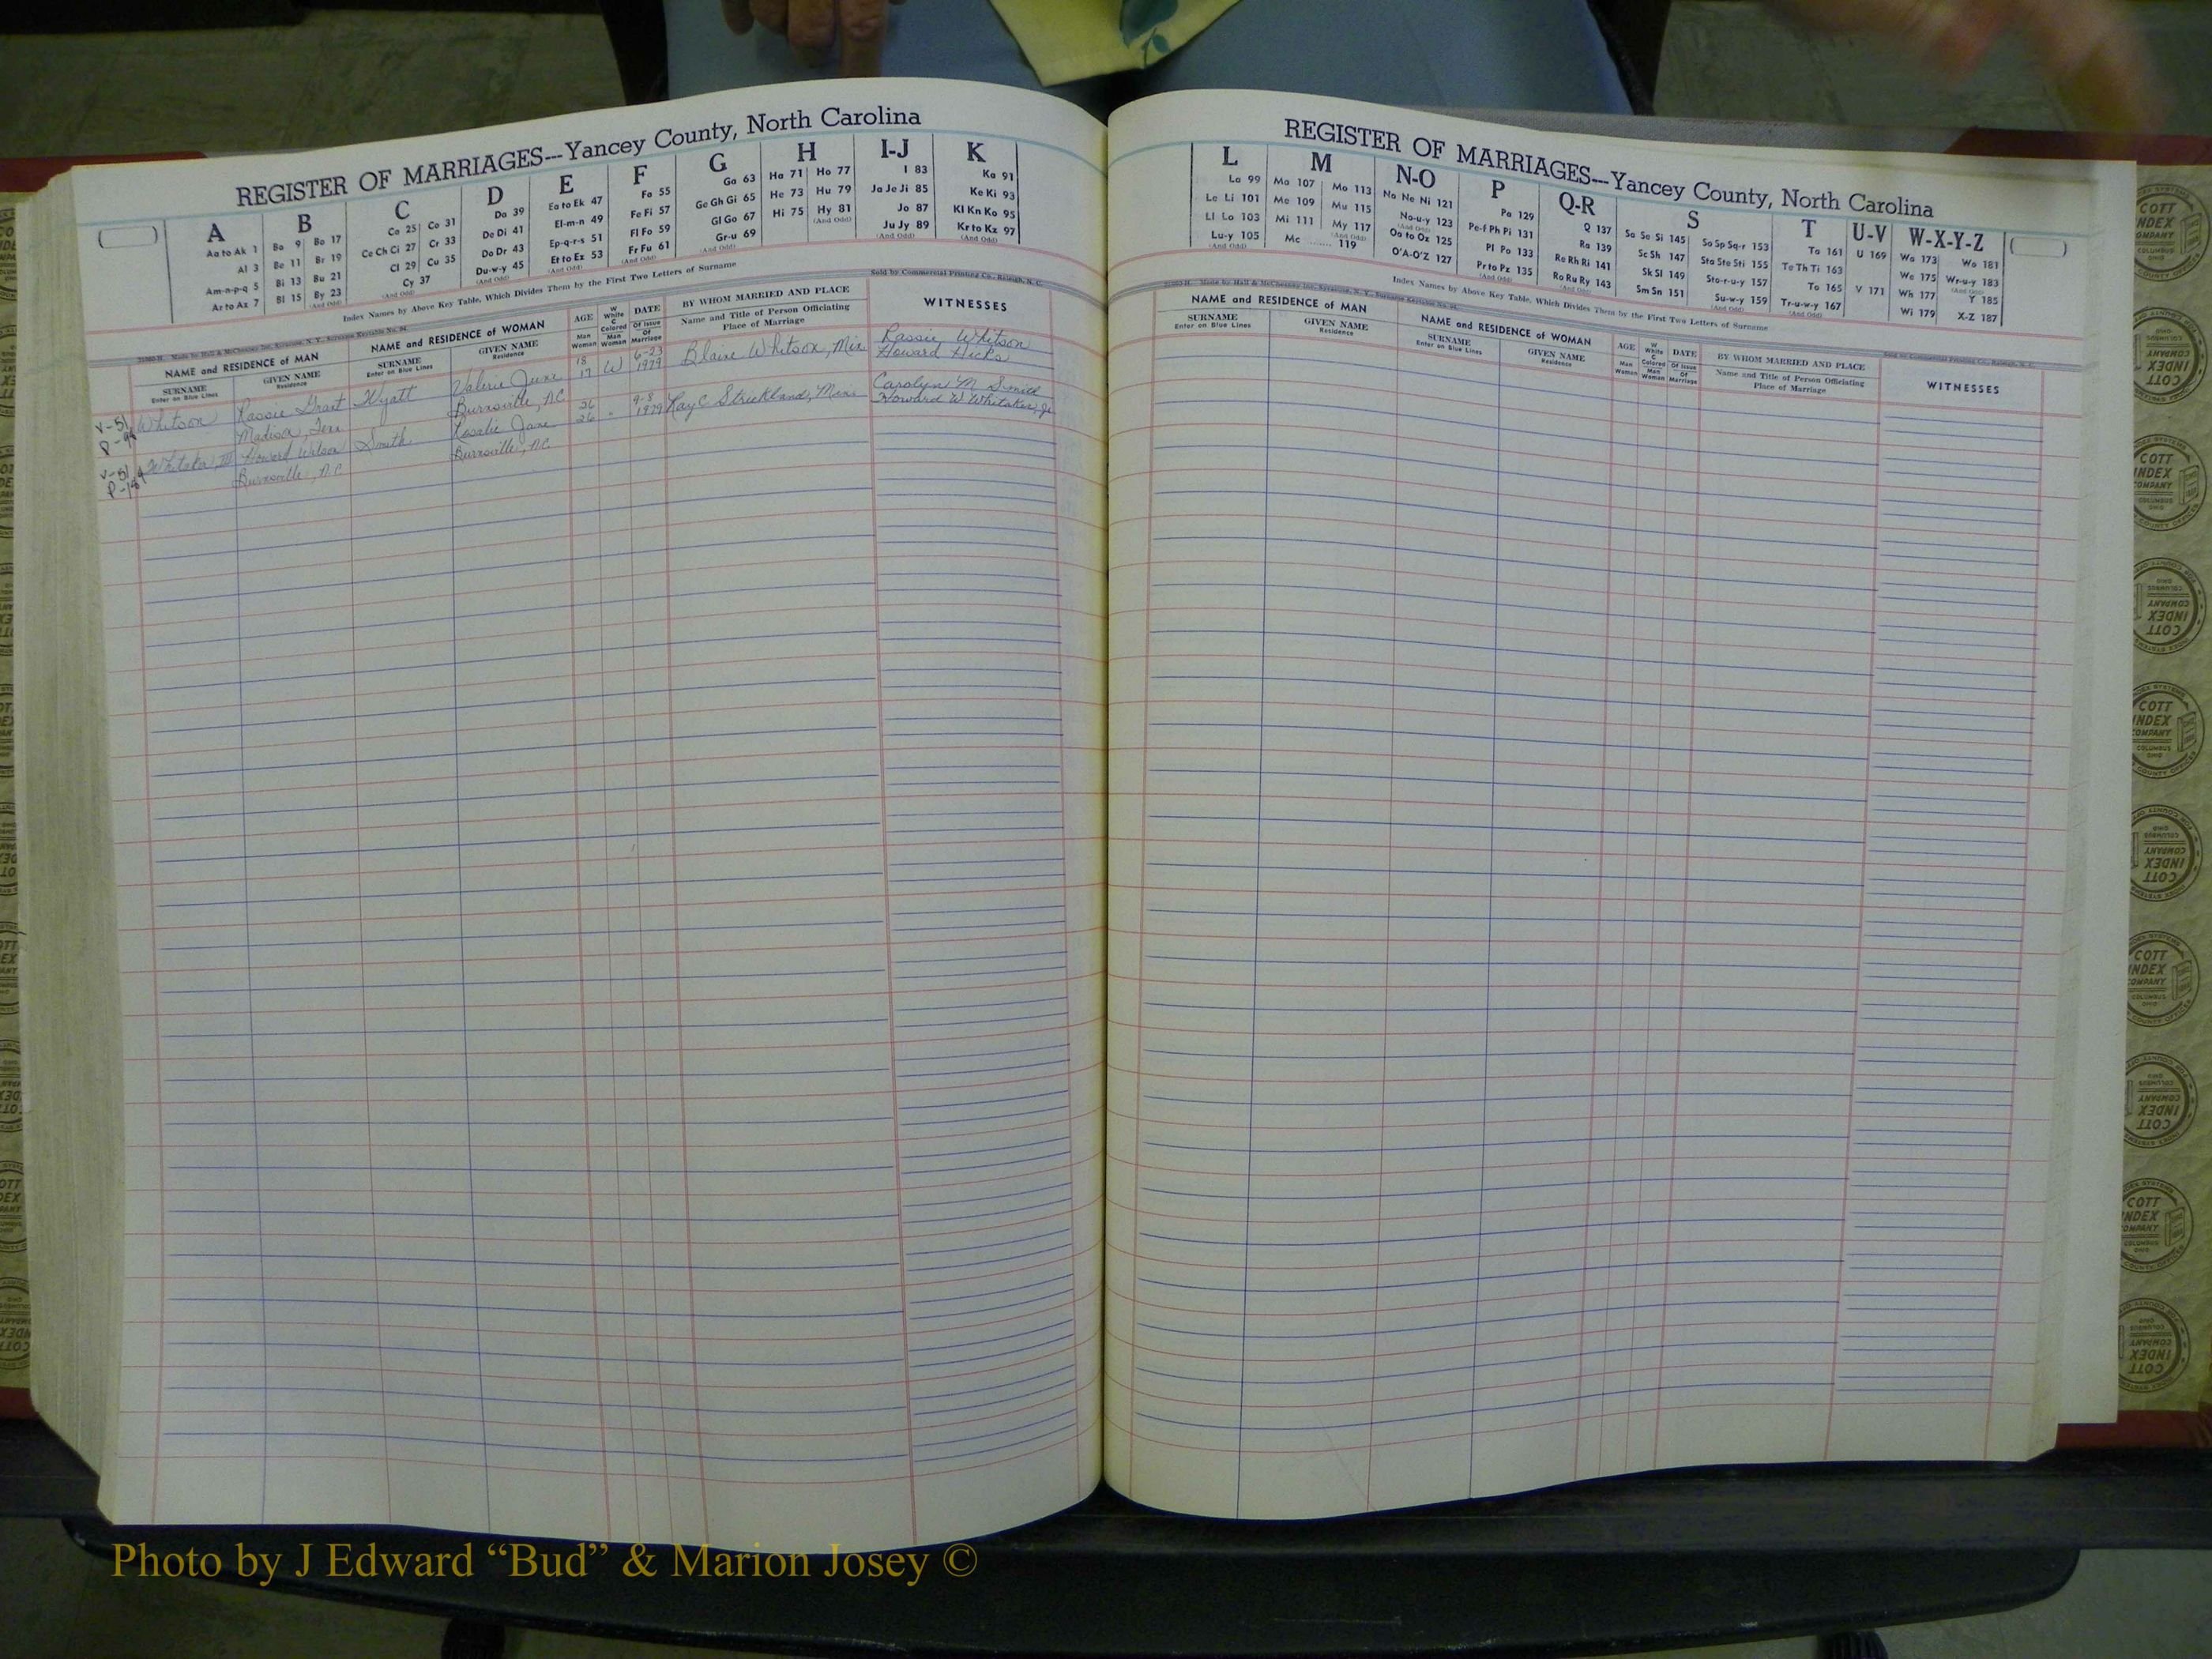 REGISTER OF MARRIAGES---Yancey County, North Carolina
A B C D E F G H I-J K
Aa to Ak 1
Al 3
Am-n-p-q 5
Ar to Az 7
Ba 9 Bo 17
Be 11 Br 19
Bi 13 Bu 21
Bl 15 By 23
(And Odd)
Ca 25 Co 31
Ce Ch Ci 27 Cr 33
Cl 29 Cu 35
Cy 37
(And Odd)
Da 39
De Di 41
Do Dr 43
Du-w-y 45
(And Odd)
Ea to Ek 47
El-m-n 49
Ep-q-r-s 51
Et to Ez 53
(And Odd)
Fa 55
Fe Fi 57
Fl Fo 59
Fr Fu 61
(And Odd)
Ga 63
Ge Gh Gi 65
Gl Go 67
Gr-u 69
(And Odd)
Ha 71 Ho 77
He 73 Hu 79
Hi 75 Hy 81
(And Odd)
I 83
Ja Je Ji 85
Jo 87
Ju Jy 89
(And Odd)
Ka 91
Ke Ki 93
Kl Kn Ko 95
Kr to Kz 97
(And Odd)
Index Names by Above Key Table, Which Divides Them by the First Two Letters of Surname
Sold by Commercial Printing Co., Raleigh, N. C.
NAME and RESIDENCE of MAN
SURNAME
Enter on Blue Lines
GIVEN NAME
Residence
NAME and RESIDENCE of WOMAN
SURNAME
Enter on Blue Lines
GIVEN NAME
Residence
AGE
Man
Woman
W
White
C
Colored
Man
Woman
DATE
Of Issue
Of
Marriage
BY WHOM MARRIED AND PLACE
Name and Title of Person Officiating
Place of Marriage
WITNESSES
V-51 Whitson Rassie Grant Wyatt Valerie June 18 W 6-23 Blaine Whitson, Min Rassie Whitson
Madison, Tenn Burnsville, NC 17 1979 Howard Hicks
V-51 Whitaker, III Howard Wilson Smith Rosalie Jane 26 " 9-8 Ray C Strickland, Min Carolyn M Smith
Burnsville, NC Burnsville, NC 26 1979 Howard W Whitaker, Jr
REGISTER OF MARRIAGES---Yancey County, North Carolina
L M N-O P Q-R S T U-V W-X-Y-Z
La 99
Le Li 101
Ll Lo 103
Lu-y 105
(And Odd)
Ma 107 Mo 113
Me 109 Mu 115
Mi 111 My 117
(And Odd)
Mc 119
Na Ne Ni 121
No-u-y 123
(And Odd)
Oa to Oz 125
O'A-O'Z 127
Pa 129
Pe-f Ph Pi 131
Pl Po 133
Pr to Pz 135
(And Odd)
Q 137
Ra 139
Re Rh Ri 141
Ro Ru Ry 143
(And Odd)
Sa Se Si 145 So Sp Sq-r 153
Sc Sh 147 Sta Ste Sti 155
Sk Sl 149 Sto-r-u-y 157
Sm Sn 151 Su-w-y 159
(And Odd)
Ta 161
Te Th Ti 163
To 165
Tr-u-w-y 167
(And Odd)
U 169
V 171
Wa 173 Wo 181
We 175 Wr-u-y 183
(And Odd)
Wh 177 Y 185
Wi 179 X-Z 187
Index Names by Above Key Table, Which Divides Them by the First Two Letters of Surname
Sold by Commercial Printing Co., Raleigh, N. C.
NAME and RESIDENCE of MAN
SURNAME
Enter on Blue Lines
GIVEN NAME
Residence
NAME and RESIDENCE of WOMAN
SURNAME
Enter on Blue Lines
GIVEN NAME
Residence
AGE
Man
Woman
W
White
C
Colored
Man
Woman
DATE
Of Issue
Of
Marriage
BY WHOM MARRIED AND PLACE
Name and Title of Person Officiating
Place of Marriage
WITNESSES
COTT
INDEX
COMPANY
COLUMBUS
OHIO
Photo by J Edward “Bud” & Marion Josey ©